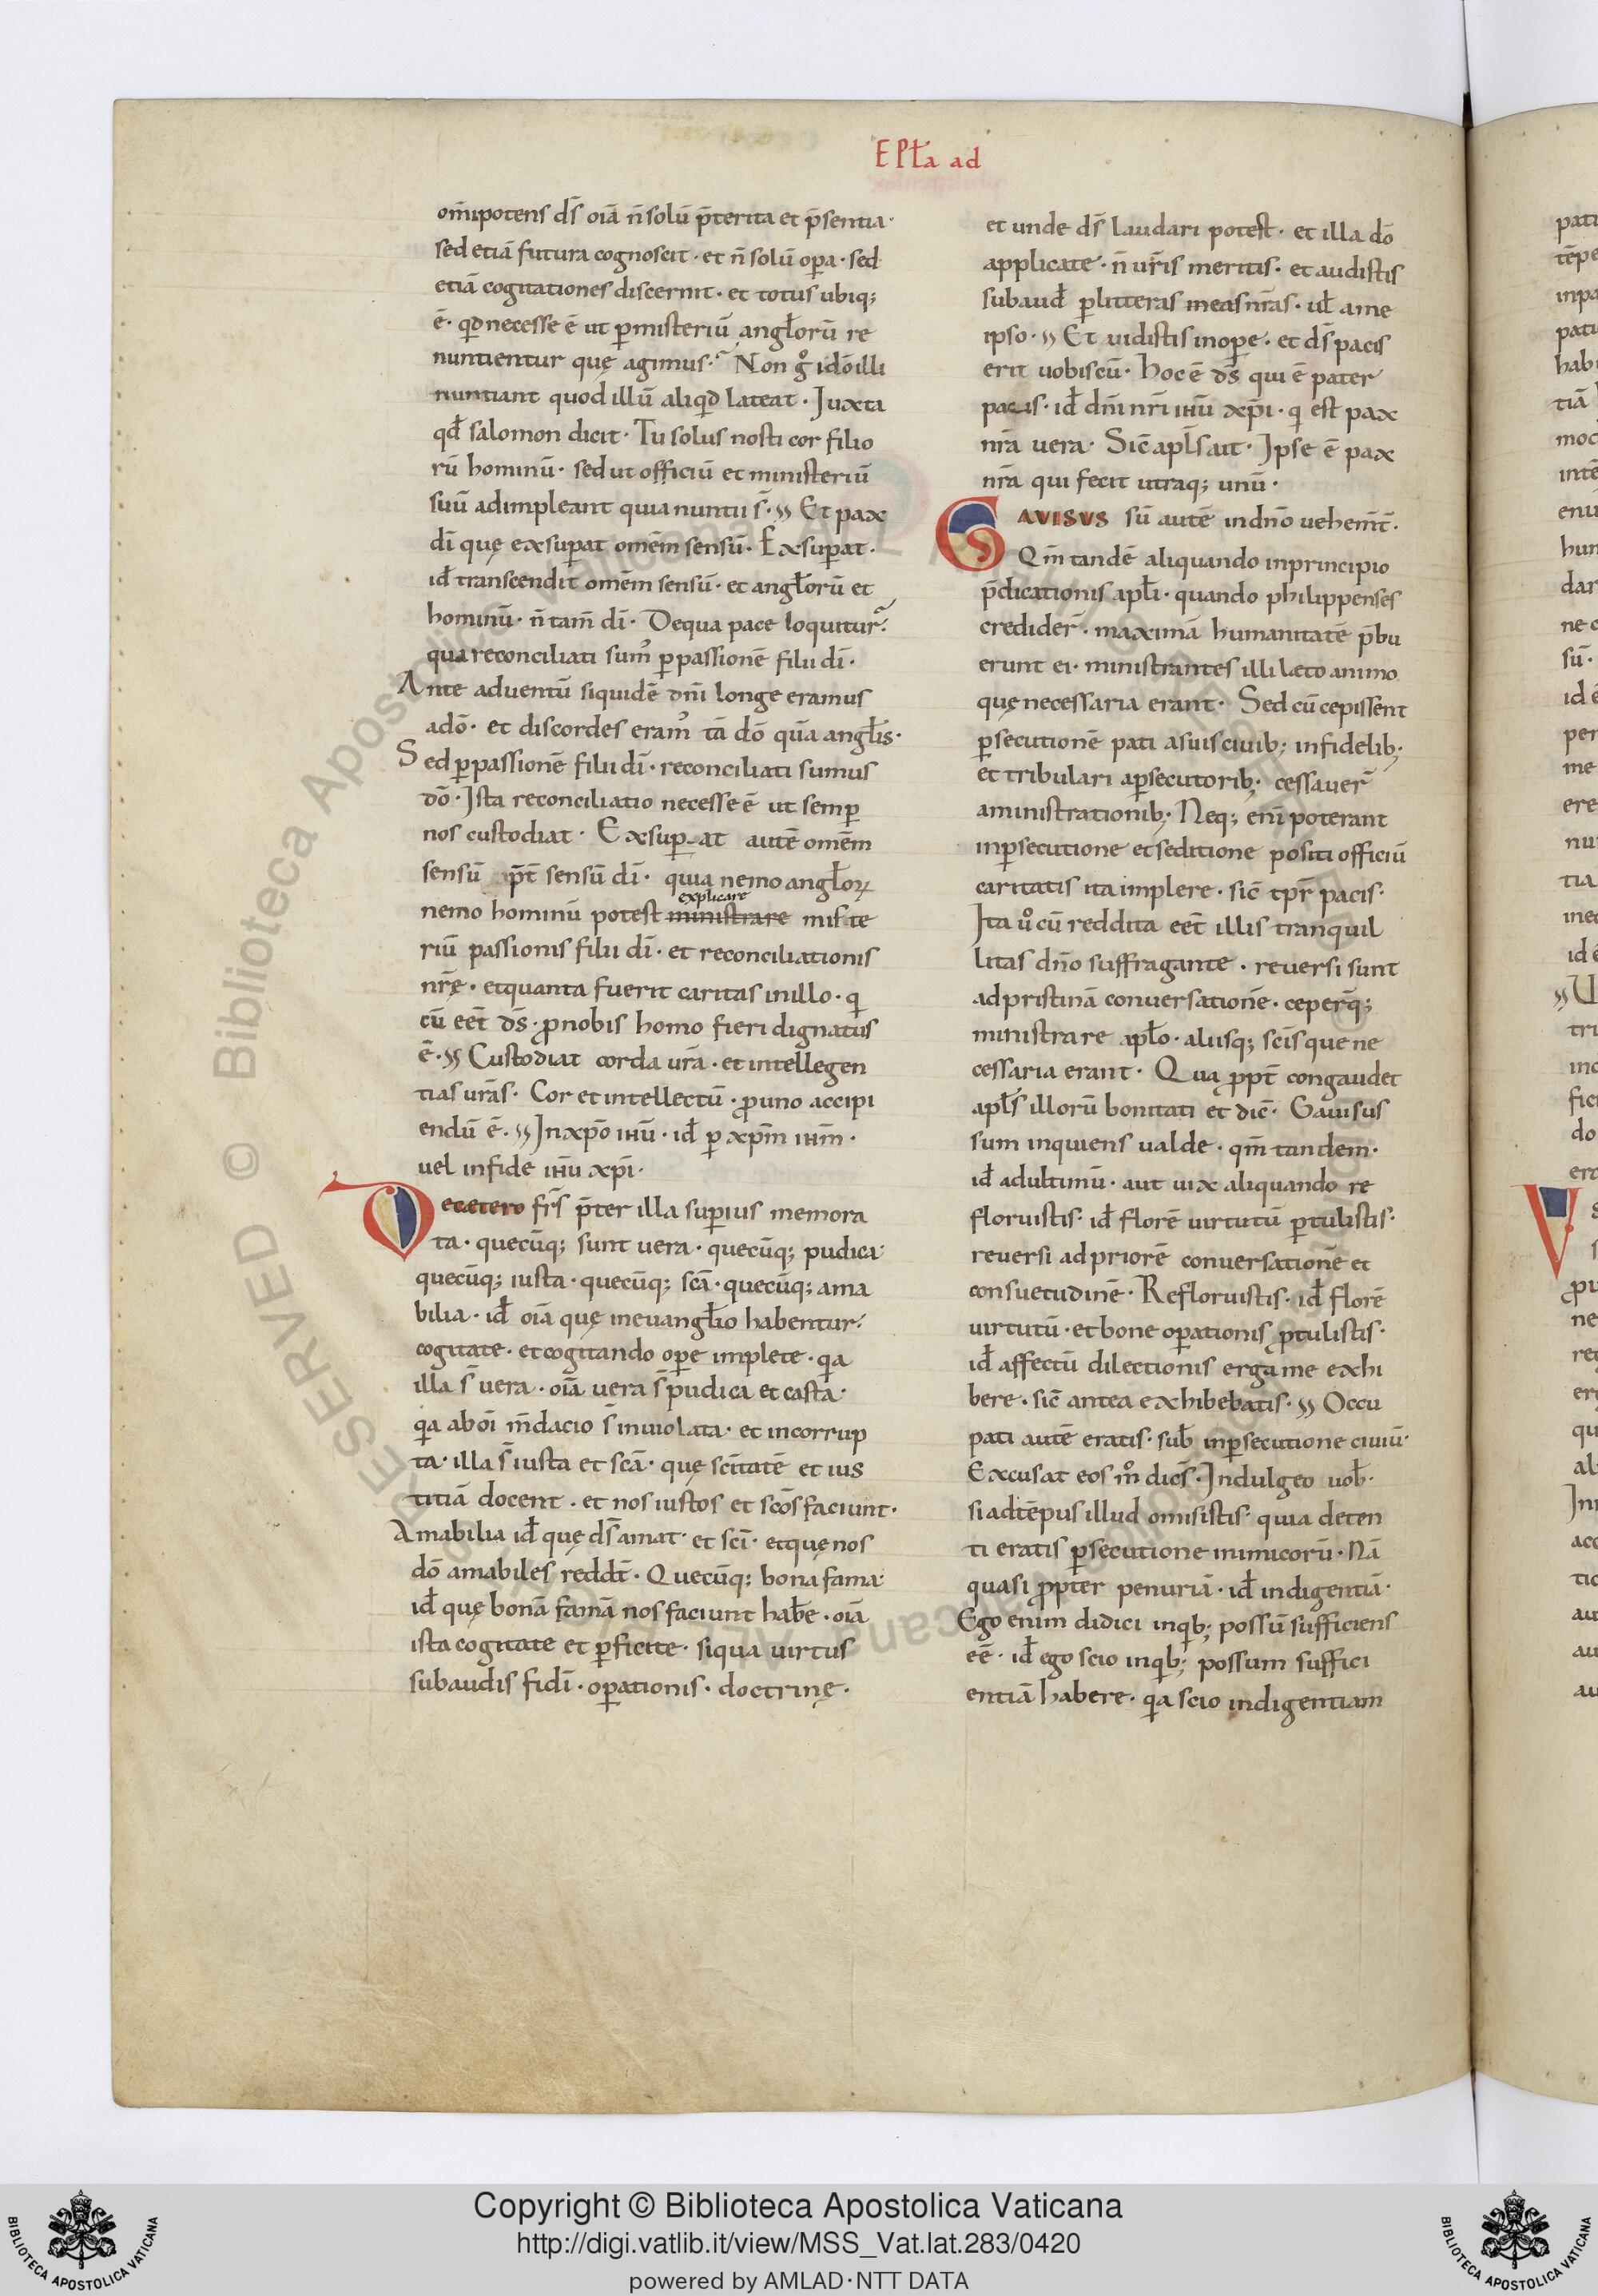 EPƚa ad
om̄ipotens ds̄ oīa n̄ solū p̄terita et p̄sentia·
sed etiā futura cognoscit· et n̄ solū oꝑa· sed
etiā cogitationes discernit· et totus ubiq;
ē· qđ necesse ē ut ꝑ misteriū angƚorū re
nuntientur quę agimus· Non gͦ idō illi
nuntiant quod illū aliqđ lateat· Juxta
qđ salomon dicit· Tu solus nosti cor filio
rū hominū· sed ut officiū et ministeriū
suū adimpleant quia nuntii s̄· Et pax
dī quę exsuꝑat omēm sensū· Exsuꝑat·
iđ transcendit omēm sensū· et angƚorū et
hominū· n̄ tam̄ dī· De qua pace loquitur?
qua reconciliati sum᾽ ꝑ passionē filii dī·
Ante aduentū siquidē dn̄i longe eramus
a dō· et discordes eram᾽ tā dō quā angƚis·
Sed ꝑ passionē filii dī· reconciliati sumus
dō· Ista reconciliatio necesse ē ut semꝑ
nos custodiat· Exsuꝑ at autē omēm
sensū p̄t sensū dī· quia nemo angƚoꝝ
explicare
nemo hominū potest ministrare miste
riū passionis filii dī· et reconciliationis
nr̄ę· et quanta fuerit caritas in illo· q
cū eēt ds̄· ꝓ nobis homo fieri dignatus
ē· Custodiat corda ur̄a· et intellegen
tias ur̄as· Cor et intellectū· ꝓ uno accipi
endū ē· In xp̄o ihū· iđ ꝑ xp̄m ihm̄·
uel in fide ihū xp̄i·
De cetero fr̄s p̄ter illa suꝑius memora
ta· quecūq; sunt uera· quecūq; pudica·
quecūq; iusta· quecūq; scā· quecūq; ama
bilia· iđ oīa quę in euangƚio habentur·
cogitate· et cogitando oꝑe implete· qa
illa s̄ uera· oīa uera s̄ pudica et casta·
qa ab oī m̄dacio s̄ inuiolata· et incorrup
ta· illa s̄ iusta et scā· quę scītatē et ius
titiā docent· et nos iustos et scōs faciunt·
Amabilia iđ quę ds̄ amat· et scī· et quę nos
dō amabiles reddt̄· Quecūq; bona fama·
iđ quę bonā famā nos faciunt hab̄e· oīa
ista cogitate et ꝑficite· siqua uirtus
subaudis fidī· oꝑationis· doctrinę·
et unde ds̄ laudari potest· et illa dō
applicate· n̄ ur̄is meritis· et audistis
subauđ ꝑ litteras meas nr̄as· uƚ a me
ipso· Et uidistis in oꝑe· et ds̄ pacis
erit uobiscū· Hoc ē ds̄ qui ē pater
pacis· iđ dn̄i nr̄i ihū xp̄i· q est pax
nr̄a uera· Sic̄ apƚs ait· Ipse ē pax
nr̄a qui fecit utraq; unū·
GAVISVS sū autē in dn̄o uehem̄t·
Qm̄ tandē aliquando in principio
p̄dicationis apƚi· quando philippenses
credider̄· maximā humanitatē p̄bu
erunt ei· ministrantes illi læto animo
quę necessaria erant· Sed cū cepissent
ꝑsecutionē pati a suis ciuib; infidelib;
et tribulari a ꝑsecutorib; cessauer̄
a ministrationib; Neq; enī poterant
in ꝑsecutione et seditione positi officiū
caritatis ita implere· sic̄ tpr̄ pacis·
Ita uͦ cū reddita eēt illis tranquil
litas dn̄o suffragante· reuersi sunt
ad pristinā conuersationē· ceperq̄;
ministrare apƚo· aliisq; scīs que ne
cessaria erant· Qua ꝓpt̄ congaudet
apƚs illorū bonitati et dic̄· Gauisus
sum inquiens ualde· qm̄ tandem·
iđ ad ultimū· aut uix aliquando re
floruistis· iđ florē uirtutū ꝑtulistis·
reuersi ad priorē conuersationē et
consuetudinē· Refloruistis· iđ florē
uirtutū· et bone oꝑationis ꝓtulistis·
iđ affectū dilectionis erga me exhi
bere· sic̄ antea exhibebatis· Occu
pati autē eratis· sub̄ in ꝑsecutione ciuiū·
Excusat eos mͦ dicēs· Indulgeo uob̄·
si ad tēpus illud omisistis· quia deten
ti eratis ꝑsecutione inimicorū· Nā
quasi ꝓpter penuriā· iđ indigentiā·
Ego enim didici in qib; possū sufficiens
eē· iđ ego scio in qib; possum suffici
entiā habere· qa scio indigentiam
Copyright © Biblioteca Apostolica Vaticana
http://digi.vatlib.it/view/MSS_Vat.lat.283/0420
powered by AMLAD·NTT DATA
BIBLIOTECA APOSTOLICA VATICANA
BIBLIOTECA APOSTOLICA VATICANA